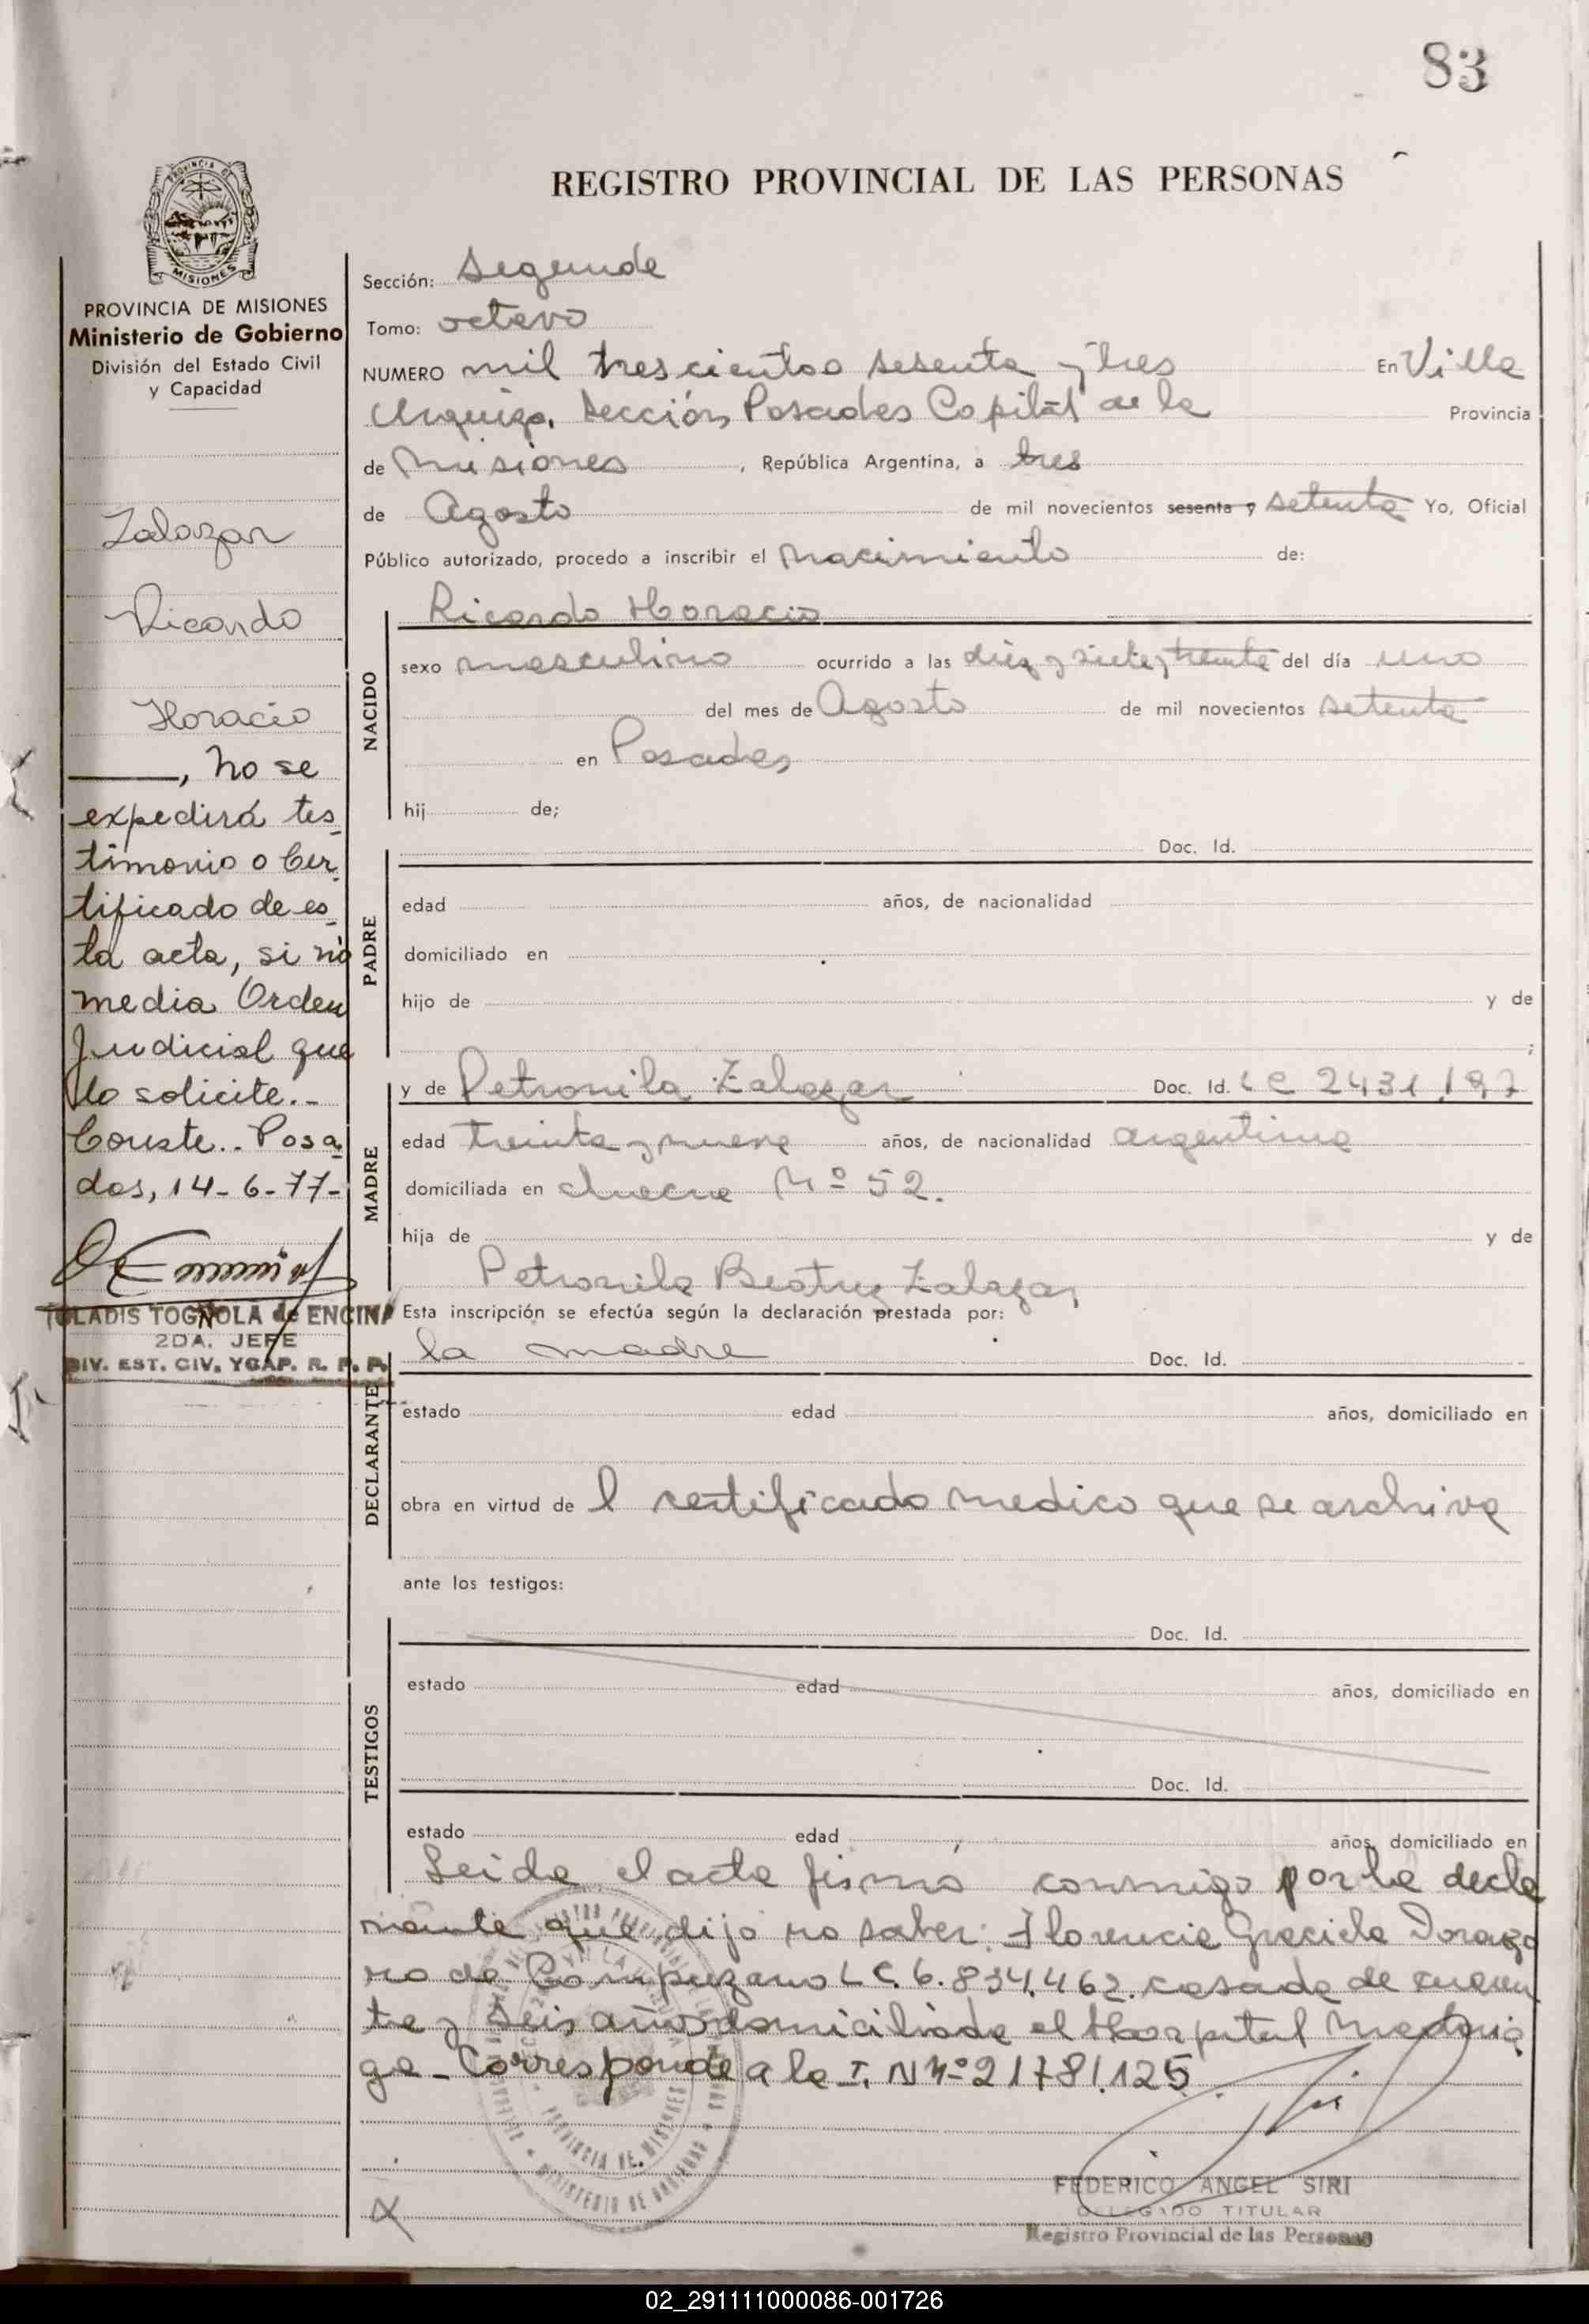 83
REGISTRO PROVINCIAL DE LAS PERSONAS
PROVINCIA DE MISIONES
Ministerio de Gobierno
División del Estado Civil
y Capacidad
Zalazar
Ricardo
Horacio
, no se
expedirá tes
timonio o Cer
tificado de es
ta acta, si no
media Orden
Judicial que
lo solicite.-
Conste.. Posa
das, 14-6-77-
TOGNOLA de ENCINA
2DA. JEFE
DIV. EST. CIV. Y CAP. R. P. P.
Sección: Segunda
Tomo: octavo
NUMERO mil trescientos sesenta y tres En Villa
Urquiza, Sección Posadas Capital de la Provincia
de Misiones, República Argentina, a tres
de Agosto de mil novecientos sesenta y setenta Yo, Oficial
Público autorizado, procedo a inscribir el nacimiento de:
NACIDO
Ricardo Horacio
sexo masculino ocurrido a las diez y siete y treinta del día uno
del mes de Agosto de mil novecientos setenta
en Posadas
hij de;
PADRE
Doc. Id.
edad años, de nacionalidad
domiciliado en
hijo de y de
;
MADRE
y de Petronila Zalazar Doc. Id. LC 2431.197
edad treinta y nueve años, de nacionalidad argentina
domiciliada en chacra Nº 52.
hija de y de
Petronila Beatriz Zalazar
Esta inscripción se efectúa según la declaración prestada por:
DECLARANTE
la madre Doc. Id.
estado edad años, domiciliado en
obra en virtud de l certificado medico que se archiva
ante los testigos:
TESTIGOS
Doc. Id.
estado edad años, domiciliado en
Doc. Id.
estado edad años, domiciliado en
Leida el acta firmó conmigo por la decla
rante que dijo no saber: Florencia Graciela
de Campuzano LC. 6.834.462. casada de cuaren
ta y seis años domiciliada el Hospital
Corresponde a la I. N Nº 21781.125
FEDERICO ANGEL SIRI
DELEGADO TITULAR
Registro Provincial de las Personas
02_291111000086-001726